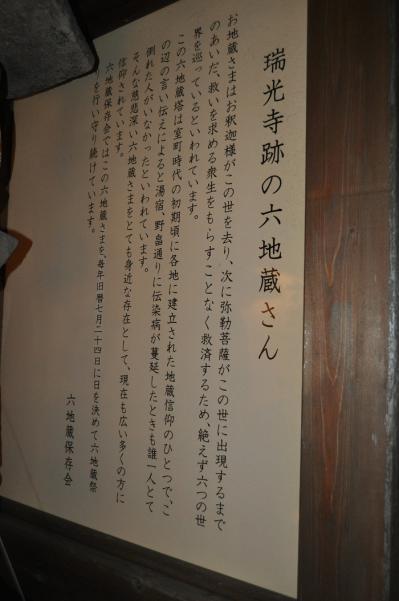 瑞光寺跡の六地蔵さん
お地蔵さまはお釈迦様がこの世を去り、次に弥勒菩薩がこの世に出現するまで
のあいだ、救いを求める衆生をもらすことなく救済するため、絶えず六つの世
界を巡っているといわれています。
この六地蔵塔は室町時代の初期頃に各地に建立された地蔵信仰のひとつで、こ
の辺の言い伝えによると湯宿、野畠通りに伝染病が蔓延したときも誰一人とて
倒れた人がいなかったといわれています。
そんな慈悲深い六地蔵さまをとても身近な存在として、現在も広い多くの方に
信仰されています。
六地蔵保存会ではこの六地蔵さまを、毎年旧暦七月二十四日に日を決めて六地蔵祭
りを行い守り続けています。
六地蔵保存会